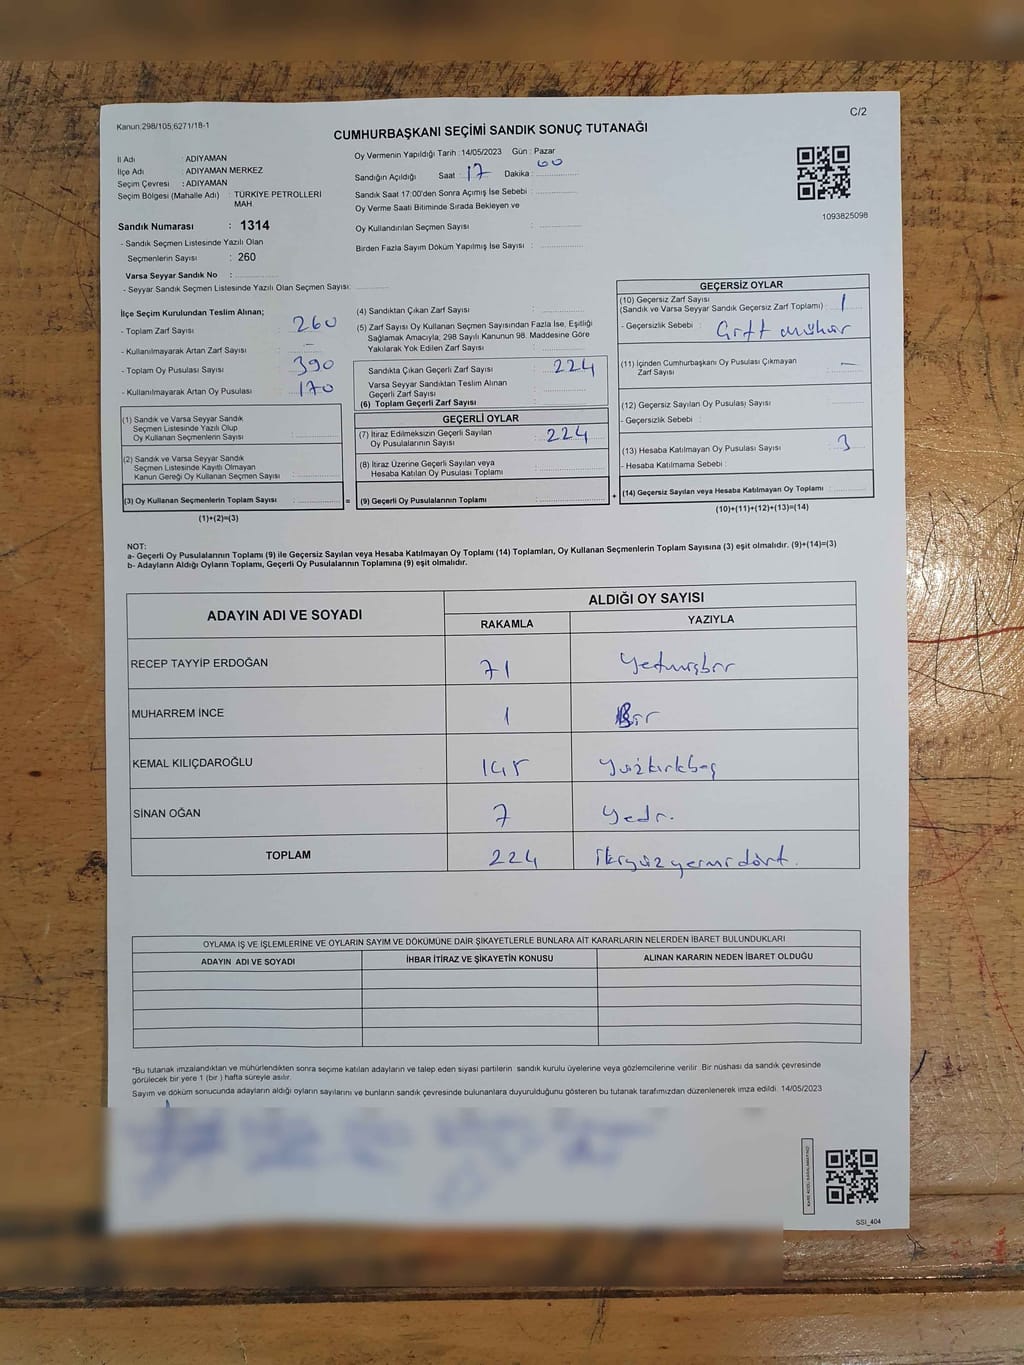 Kanun:298/105;6271/18-1
C/2
CUMHURBAŞKANI SEÇİMİ SANDIK SONUÇ TUTANAĞI
İl Adı : ADIYAMAN
İlçe Adı : ADIYAMAN MERKEZ
Seçim Çevresi : ADIYAMAN
Seçim Bölgesi (Mahalle Adı) : TÜRKİYE PETROLLERİ MAH
Sandık Numarası : 1314
- Sandık Seçmen Listesinde Yazılı Olan
Seçmenlerin Sayısı : 260
Varsa Seyyar Sandık No :
- Seyyar Sandık Seçmen Listesinde Yazılı Olan Seçmen Sayısı:
Oy Vermenin Yapıldığı Tarih : 14/05/2023 Gün : Pazar
Sandığın Açıldığı Saat : 17 Dakika : 00
Sandık Saat 17:00'den Sonra Açımış İse Sebebi :
Oy Verme Saati Bitiminde Sırada Bekleyen ve
Oy Kullandırılan Seçmen Sayısı :
Birden Fazla Sayım Döküm Yapılmış İse Sayısı :
1093825098
İlçe Seçim Kurulundan Teslim Alınan;
- Toplam Zarf Sayısı : 260
- Kullanılmayarak Artan Zarf Sayısı : -
- Toplam Oy Pusulası Sayısı : 390
- Kullanılmayarak Artan Oy Pusulası : 170
(1) Sandık ve Varsa Seyyar Sandık
Seçmen Listesinde Yazılı Olup
Oy Kullanan Seçmenlerin Sayısı :
(2) Sandık ve Varsa Seyyar Sandık
Seçmen Listesinde Kayıtlı Olmayan
Kanun Gereği Oy Kullanan Seçmen Sayısı :
(3) Oy Kullanan Seçmenlerin Toplam Sayısı : =
(1)+(2)=(3)
(4) Sandıktan Çıkan Zarf Sayısı :
(5) Zarf Sayısı Oy Kullanan Seçmen Sayısından Fazla İse, Eşitliği
Sağlamak Amacıyla; 298 Sayılı Kanunun 98. Maddesine Göre
Yakılarak Yok Edilen Zarf Sayısı :
Sandıkta Çıkan Geçerli Zarf Sayısı : 224
Varsa Seyyar Sandıktan Teslim Alınan
Geçerli Zarf Sayısı :
(6) Toplam Geçerli Zarf Sayısı :
GEÇERLİ OYLAR
(7) İtiraz Edilmeksizin Geçerli Sayılan
Oy Pusulalarının Sayısı : 224
(8) İtiraz Üzerine Geçerli Sayılan veya
Hesaba Katılan Oy Pusulası Toplamı :
(9) Geçerli Oy Pusulalarının Toplamı : +
GEÇERSİZ OYLAR
(10) Geçersiz Zarf Sayısı
(Sandık ve Varsa Seyyar Sandık Geçersiz Zarf Toplamı) : 1
- Geçersizlik Sebebi : Çift mühür
(11) İçinden Cumhurbaşkanı Oy Pusulası Çıkmayan
Zarf Sayısı : -
(12) Geçersiz Sayılan Oy Pusulası Sayısı :
- Geçersizlik Sebebi :
(13) Hesaba Katılmayan Oy Pusulası Sayısı : 3
- Hesaba Katılmama Sebebi :
(14) Geçersiz Sayılan veya Hesaba Katılmayan Oy Toplamı :
(10)+(11)+(12)+(13)=(14)
NOT:
a- Geçerli Oy Pusulalarının Toplamı (9) ile Geçersiz Sayılan veya Hesaba Katılmayan Oy Toplamı (14) Toplamları, Oy Kullanan Seçmenlerin Toplam Sayısına (3) eşit olmalıdır. (9)+(14)=(3)
b- Adayların Aldığı Oyların Toplamı, Geçerli Oy Pusulalarının Toplamına (9) eşit olmalıdır.
ADAYIN ADI VE SOYADI
ALDIĞI OY SAYISI
RAKAMLA YAZIYLA
RECEP TAYYİP ERDOĞAN 71 Yetmişbir
MUHARREM İNCE 1 Bir
KEMAL KILIÇDAROĞLU 145 Yüzkırkbeş
SİNAN OĞAN 7 Yedi.
TOPLAM 224 ikiyüzyirmidört.
OYLAMA İŞ VE İŞLEMLERİNE VE OYLARIN SAYIM VE DÖKÜMÜNE DAİR ŞİKAYETLERLE BUNLARA AİT KARARLARIN NELERDEN İBARET BULUNDUKLARI
ADAYIN ADI VE SOYADI İHBAR İTİRAZ VE ŞİKAYETİN KONUSU ALINAN KARARIN NEDEN İBARET OLDUĞU
*Bu tutanak imzalandıktan ve mühürlendikten sonra seçime katılan adayların ve talep eden siyasi partilerin sandık kurulu üyelerine veya gözlemcilerine verilir. Bir nüshası da sandık çevresinde
görülecek bir yere 1 (bir) hafta süreyle asılır.
Sayım ve döküm sonucunda adayların aldığı oyların sayılarını ve bunların sandık çevresinde bulunanlara duyurulduğunu gösteren bu tutanak tarafımızdan düzenlenerek imza edildi. 14/05/2023
SSI_404